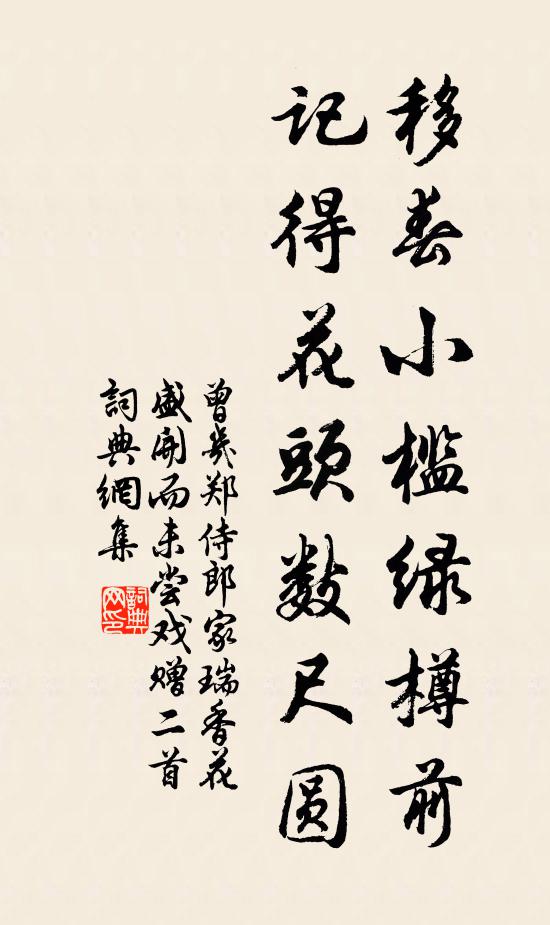 移春小槛绿樽前
记得花頭数尺圆
曾幾郑侍郎家瑞香花
盛開而未尝戏赠二首
詞典網集
詞典
网印